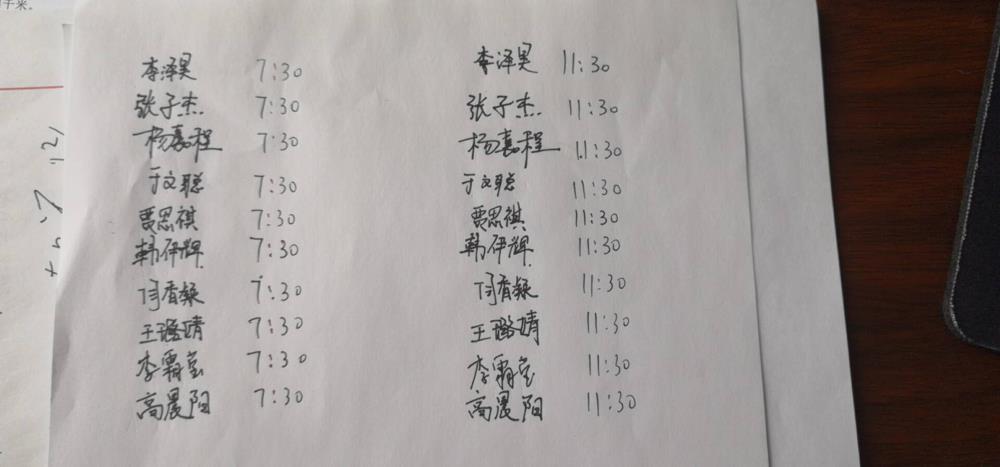 李泽昊 7:30 李泽昊 11:30
张子杰 7:30 张子杰 11:30
杨嘉程 7:30 杨嘉程 11:30
于文聪 7:30 于文聪 11:30
贾思祺 7:30 贾思祺 11:30
韩伊辉 7:30 韩伊辉 11:30
闫香凝 7:30 闫香凝 11:30
王璐婧 7:30 王璐婧 11:30
李霸宝 7:30 李霸宝 11:30
高晨阳 7:30 高晨阳 11:30